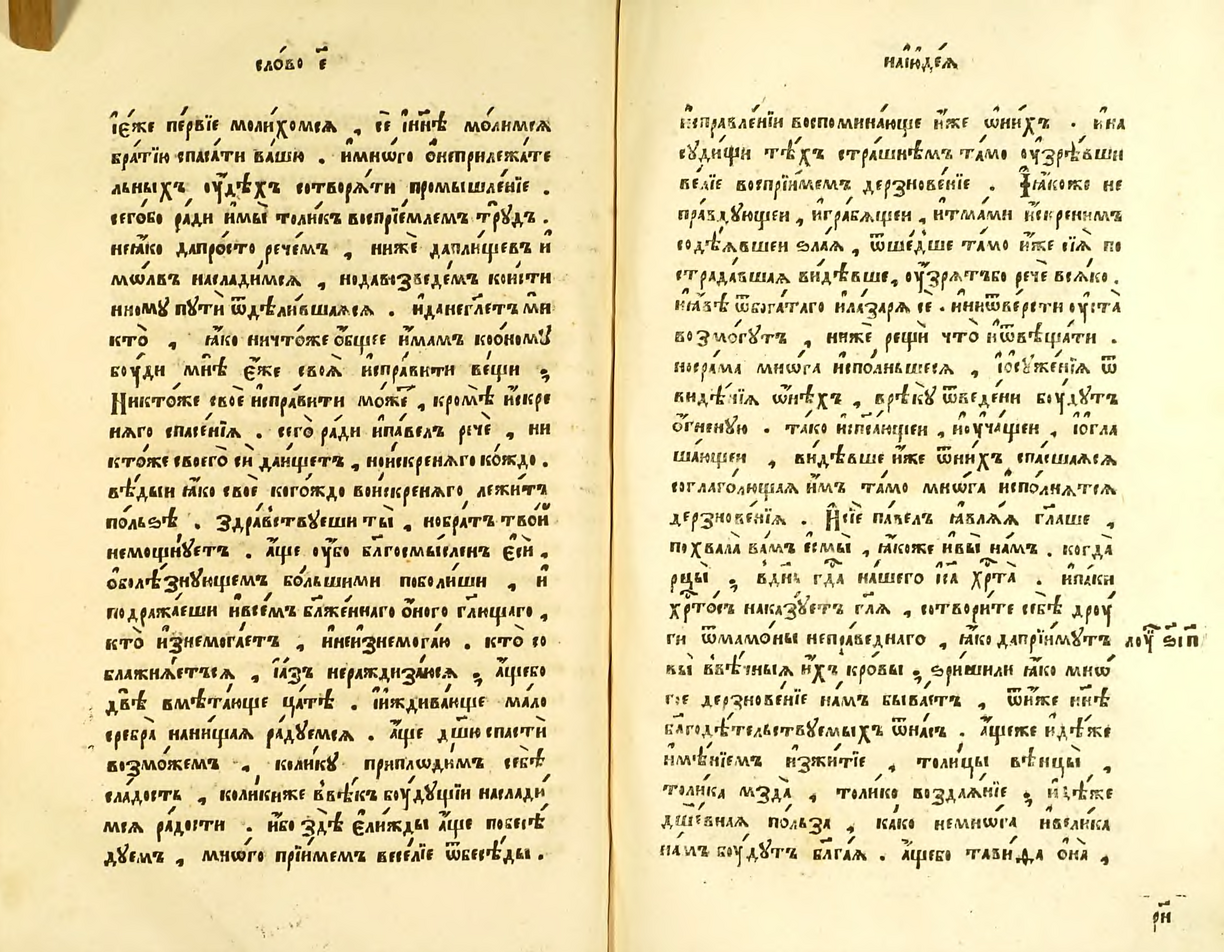 сло́во є҃
і҆є́же пе́рвїе моли́хомсѧ , сѐ і҆нн҃ѣ мо́лимсѧ
бра́тїю спаса́ти ва́шю . и҆мнѡ́го ѻ҆неприлежа́те
льныхъ ᲂу҆дѣ́хъ сотворѧ́ти промышле́нїе .
сегѡ́бо ра́ди и҆мы̀ толи́къ воспрїе́млемъ трꙋ́дъ .
неꙗ҆́ко дапро́сто рече́мъ , нижѐ даплище́въ и҆
мѡ́лвъ наслади́мсѧ , нодавозведе́мъ кои́сти
нномꙋ пꙋтѝ ѿдѣли́вшаѧсѧ . и҆данегл҃етъ ми
кто̀ , ꙗ҆́ко ничто́же ѻ҆́бщее и҆́мамъ коѻ҆номꙋ̀
бꙋ́ди мнѣ̀ є҆́же своѧ̀ и҆спра́вити ве́щи ;
Никто́же своѐ и҆спра́вити мо́же , кромѣ̀ и҆́скре
нѧго спасе́нїѧ . сего̀ ра́ди и҆па́велъ речѐ , ни
кто́же своего̀ сѝ даи҆́щетъ , нои҆́скренѧго ко́ждо .
вѣ́дыи ꙗ҆́ко своѐ кого́ждо вои҆́скренѧго лежи́тъ
по́льѕѣ . Здра́вствꙋеши ты̀ , нобра́тъ тво́й
немощнꙋ́етъ . а҆́ще ᲂу҆́бо бл҃госмы́сленъ є҆сѝ ,
ѻ҆болѣ́знꙋющемъ бо́льшими поболи́ши , и҆
подража́еши и҆всемъ бл҃же́ннаго ѻ҆́ного гл҃ющаго ,
кто̀ и҆знемога́етъ , и҆неи҆знемога́ю . кто̀ со
блажнѧ́етъсѧ , і҆а҆́зъ нераждиза́юсѧ ; а҆́щебо
двѣ̀ вмѣта́юще ца́тѣ . і҆и҆ждива́юще ма́ло
сребра̀ нани́щаѧ ра́дꙋемсѧ . а҆́ще дш҃ю спастѝ
возмо́жемъ , коли́кꙋ приплѡди́мъ себѣ̀
сла́дость , коли́киже в̾вѣ́къ бꙋ́дꙋщїи наслади
мсѧ ра́дости . и҆́бо здѣ̀ є҆ди́жды а҆́ще побесѣ́
дꙋемъ , мнѡ́го прїи́мемъ весе́лїе ѿбесѣ́ды .
наі҆ю҆де́ѧ
и҆справле́нїи воспомина́юще и҆́же ѡ҆ни́хъ . и҆на
сꙋди́щи тѣ́хъ стра́шнѣмъ та́мо ᲂу҆зрѣ́вши
ве́лїе воспрїи́мемъ дерзнове́нїе . Ꙗ҆́коже не
пра́вдꙋющеи , и҆гра́бѧщеи , и҆тма́ми и҆́скренимъ
содѣ́ѧвшеи ѕла́ѧ , ѿше́дше та́мо и҆́же сїѧ̀ по
страда́вшаѧ ви́дѣвше , ᲂу҆́зрѧтъбо речѐ всѧ́ко .
ꙗ҆́вѣ ѿбога́таго и҆ла́зарѧ сѐ . и҆ниѿве́рсти ᲂу҆ста̀
возмо́гꙋтъ , нижѐ рещѝ что̀ и҆ѿвѣща́ти .
носра́ма мнѡ́га и҆спо́лньшесѧ , і҆ѻ҆сꙋже́нїѧ ѿ
видѣ́нїѧ ѻ҆нѣ́хъ , врѣ́кꙋ ѿведе́ни бꙋ́дꙋтъ
ѻ҆́гненꙋю . та́ко и҆спаса́ющеи , и҆ᲂу҆ча́щеи , і҆ѻ҆гла
ша́ющеи , ви́дѣвше и҆́же ѿни́хъ спа́сшаѧсѧ
соглаго́лющаѧ и҆́мъ та́мо мнѡ́га и҆спо́лнѧтсѧ
дерзнове́нїѧ . И҆сїѐ па́велъ ꙗ҆влѧ́ѧ гл҃аше ,
похвала̀ ва́мъ є҆смы̀ , ꙗ҆́коже и҆вы̀ на́мъ . когда̀
рцы̀ ; вдн҃ь гд҃а на́шего і҆с҃а хр҃та̀ . и҆па́ки
хр҃то́съ наказꙋ́етъ гл҃ѧ , сотвори́те себѣ̀ дрꙋ́
ги ѿмамо́ны непра́веднаго , ꙗ҆́ко дапрїи́мꙋтъ
лꙋ҃ ѕ҃і п҃
вы̀ в̾вѣ́чныѧ и҆́хъ кро́вы ; ѕри́шили ꙗ҆́ко мнѡ́
гое дерзнове́нїе на́мъ быва́етъ , ѿни́же нн҃ѣ
бл҃годѣ́тельствꙋемыхъ ѿна́съ . а҆́щеже и҆дѣ́же
и҆мѣ́нїемъ и҆зжи́тїе , толи́цы вѣнцы̀ ,
толи́ка мзда̀ , толи́ко воздаѧ́нїе ; и҆дѣ́же
дш҃е́внаѧ по́льза , ка́ко немнѡ́га и҆вели́ка
на́мъ бꙋ́дꙋтъ бл҃га́ѧ . а҆́щебо тави́ѳа ѻ҆на̀ ,
рн҃